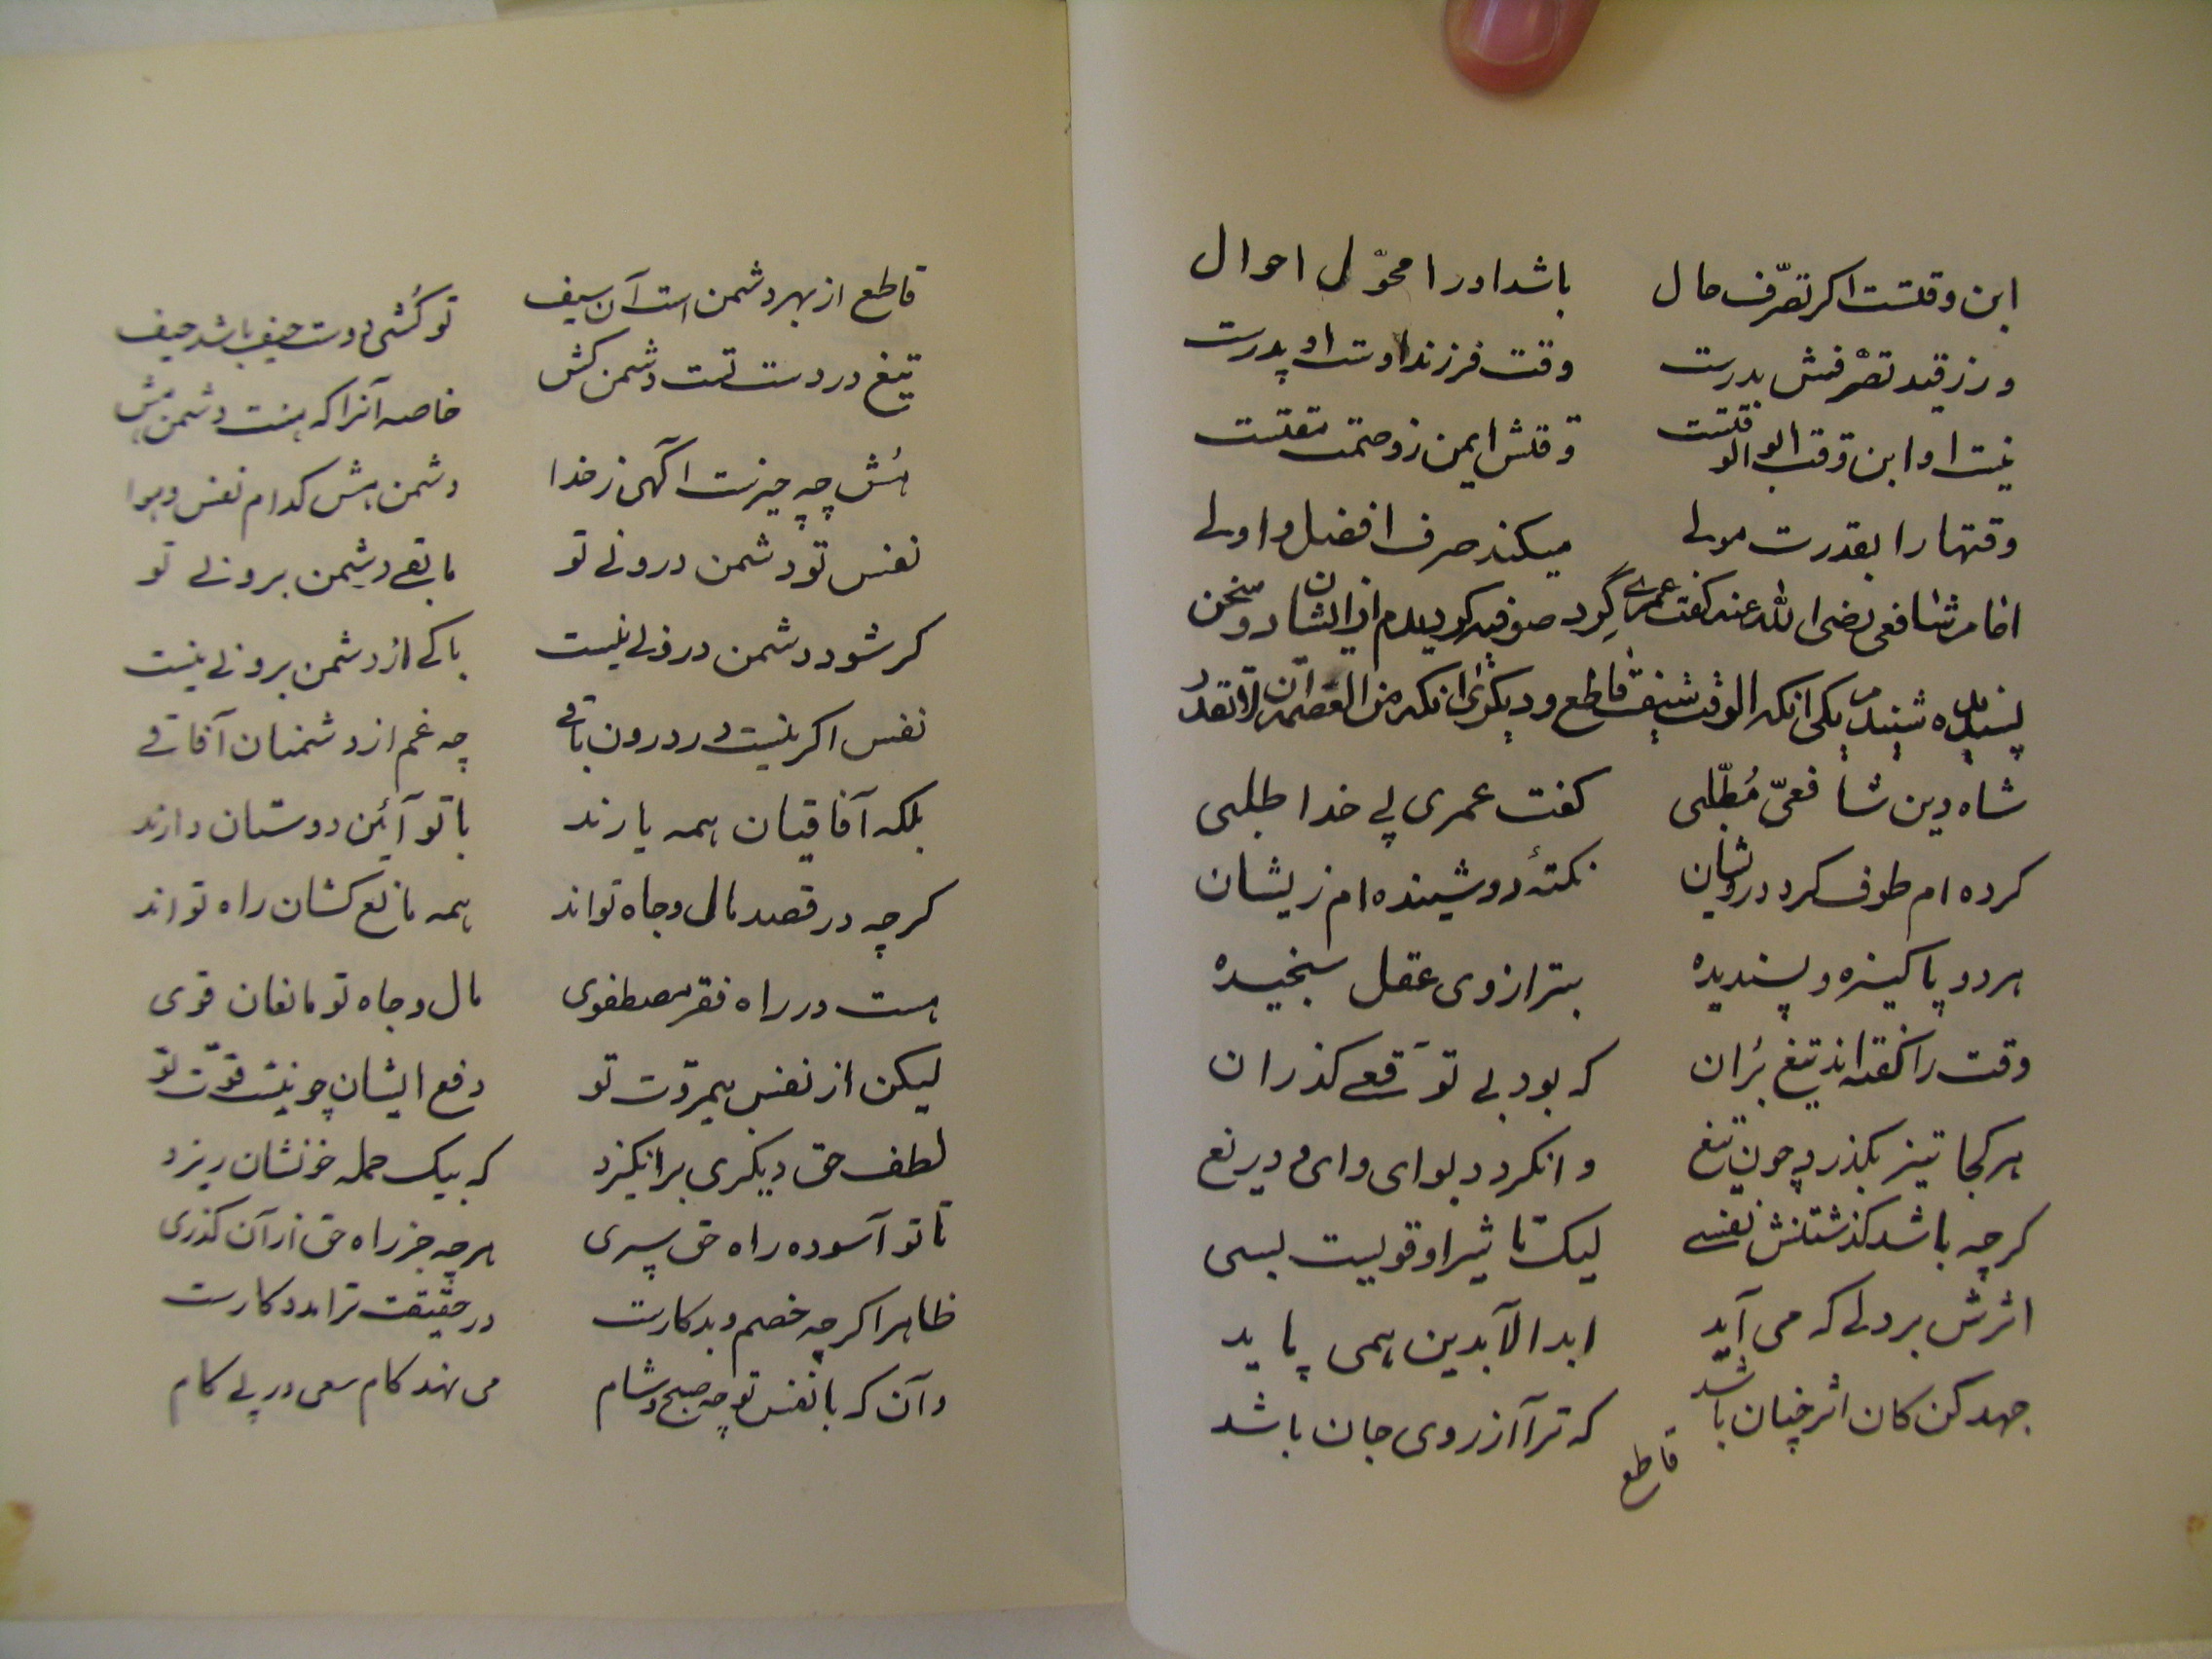 ابن وقتست اکر تصرّف حال باشد او را محوّل احوال
ور ز قید تصرّفش بدرست وقت فرزند اوست او پدرست
نیست او ابن وقت ابو الوقتست وقتش ایمن ز وصمت مقتست
وقتها را بقدرت مولی میکند صرف افضل و اولی
امام شافعی رضی الله عنه کفت عمری گرد صوفیه کردیدم از ایشان دو سخن
پسندیده شنیدم یکی انکه الوقت سیف قاطع و دیکری انکه من العصمة ان لا تقدر
شاه دین شافعیّ مُطّلبی کفت عمری پی خدا طلبی
کرده ام طوف کرد درویشان نکتهٔ دو شینده ام زیشان
هر دو پاکیزه و پسندیده بترازوی عقل سنجیده
وقت را کفته اند تیغ بُران که بود بی توقعی کذران
هر کجا تیز بکذرد چون تیغ وانکردد بوای وای و دریغ
کرچه باشد کذشتنش نفسی لیک تاثیر او قویست بسی
اثرش بر دلی که می آید ابد الآبدین همی پاید
جهد کن کان اثر چنان باشد که ترا آرزوی جان باشد
قاطع
قاطع از بهر دشمن است آن سیف تو کُشی دوست حیف باشد حیف
تیغ در دست تست دشمن کش خاصه آنرا که هست دشمن هش
هُش چه چیزست اکهی ز خدا دشمن هش کدام نفس و هوا
نفس تو دشمن درونی تو مابقی دشمن برونی تو
کر شود دشمن درونی نیست باکی از دشمن برونی نیست
نفس اکر نیست در درون باقی چه غم از دشمنان آفاقی
بلکه آفاقیان همه یارند با تو آئین دوستان دارند
کرچه در قصد مال و جاه تو اند همه مانع کشان راه تو اند
هست در راه فقر مصطفوی مال و جاه تو مانعان قوی
لیکن از نفس بیمروت تو دفع ایشان چو نیست قوّت تو
لطف حق دیکری برانکیزد که بیک حمله خونشان ریزد
تا تو آسوده راه حق سپری هر چه جز راه حق از آن کذری
ظاهرا کرچه خصم و بدکارست در حقیقت ترا مددکارست
وآن که با نفس تو چه صبح و شام می نهد کام سعی در پی کام